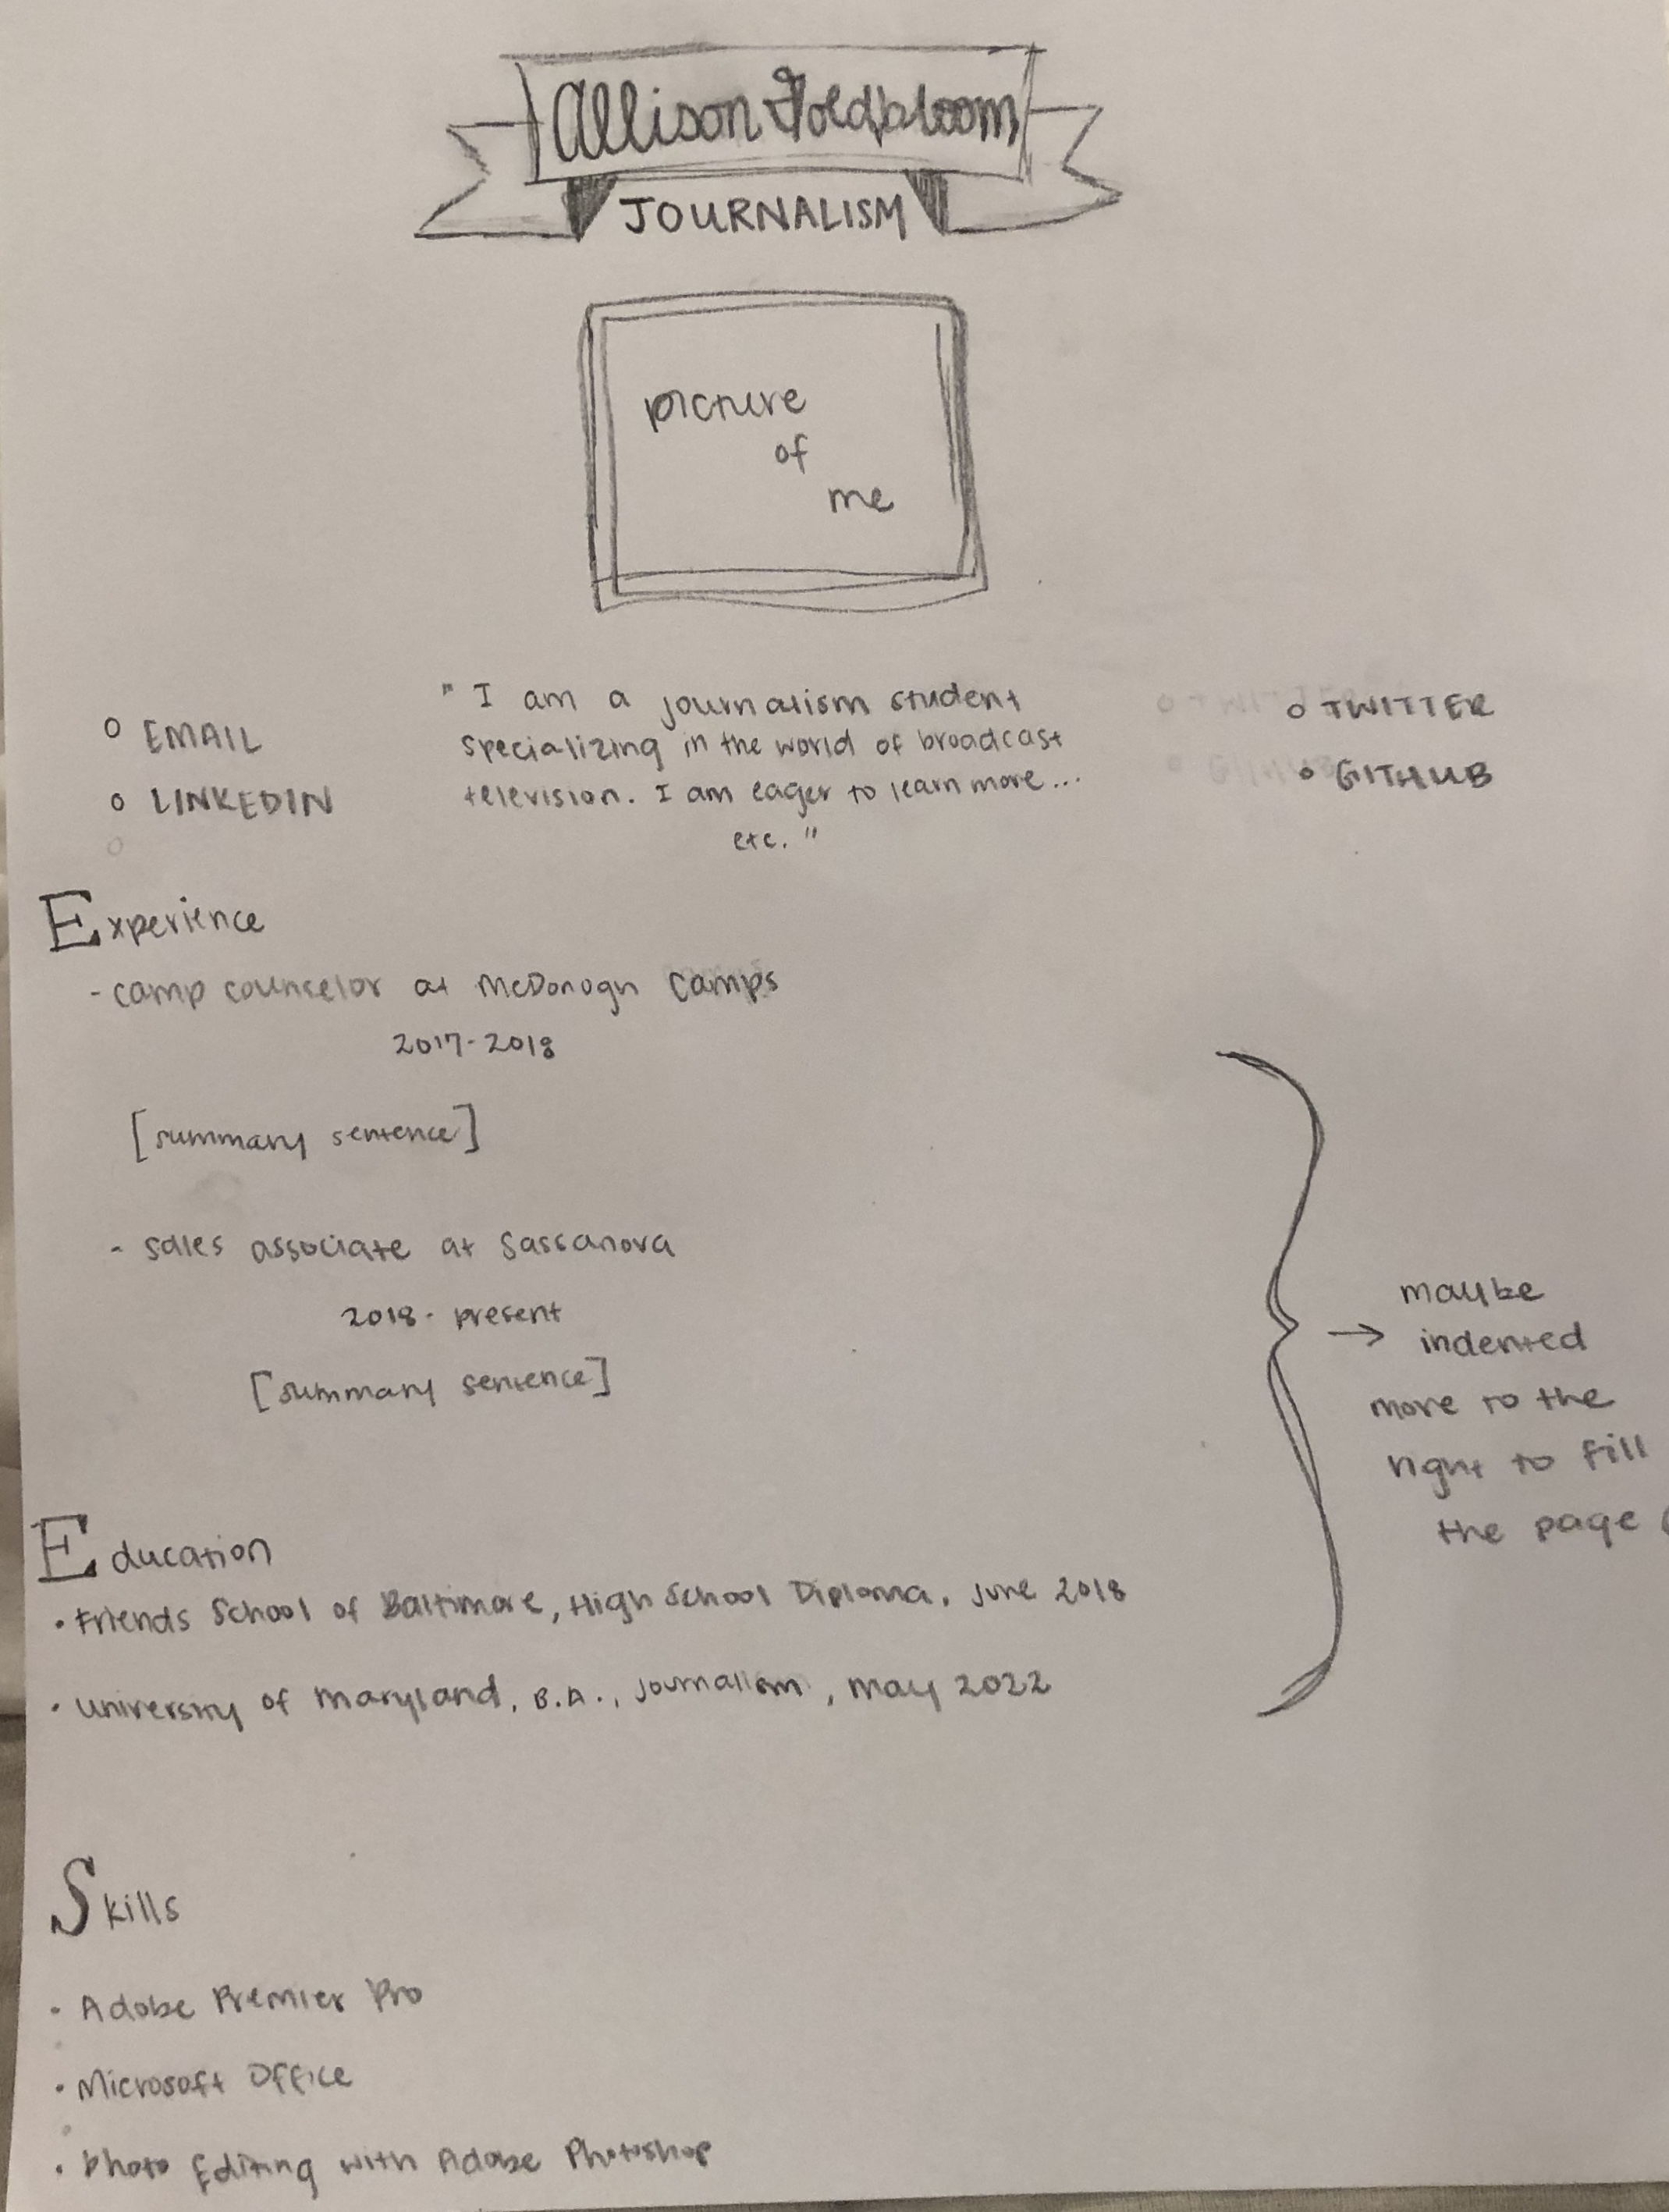 Allison Goldbloom
JOURNALISM
picture
of
me
o EMAIL
o LINKEDIN
" I am a journalism student
specializing in the world of broadcast
television. I am eager to learn more...
etc. "
o TWITTER
o GITHUB
Experience
- camp counselor at McDonogh Camps
2017-2018
[summary sentence]
- sales associate at Sassanova
2018- present
[summary sentence]
→ maybe
indented
more to the
right to fill
the page
Education
• Friends School of Baltimore, High School Diploma, June 2018
• University of Maryland, B.A., Journalism, May 2022
Skills
• Adobe Premier Pro
• Microsoft Office
• Photo Editing with Adobe Photoshop